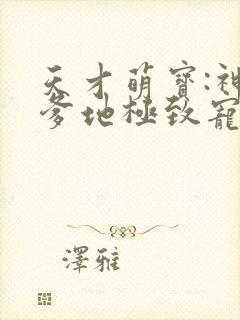 天才萌寶:神
爹地極致寵
澤雅